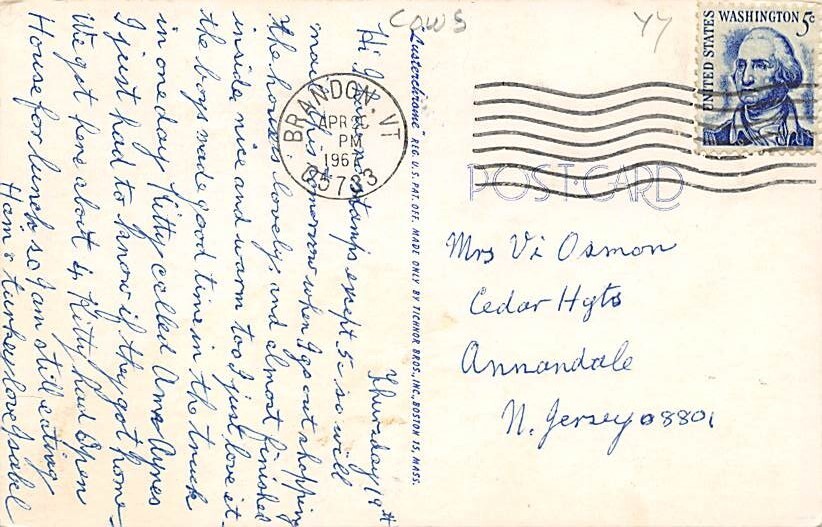 Cows
yy
UNITED STATES WASHINGTON 5c
BRANDON, VT
APR 20
PM
1967
05733
POST CARD
"Lusterchrome" REG. U.S. PAT. OFF. MADE ONLY BY TICHNOR BROS., INC., BOSTON 15, MASS.
Thursday 19th
Hi I have no stamps exept 5c so will
mail this tomorrow when I go out shopping
the house is lovely and almost finished
inside, nice and warm too I just love it-
the boys made good time in the truck
in one day Kitty called Ayres
I just had to know if they got home-
We got here about 4, Kitty had Open
House for lunch so I am still eating
Ham & turkey love Isabel
Mrs Vi Osmon
Cedar Hgts
Annandale
N. Jersey 08801